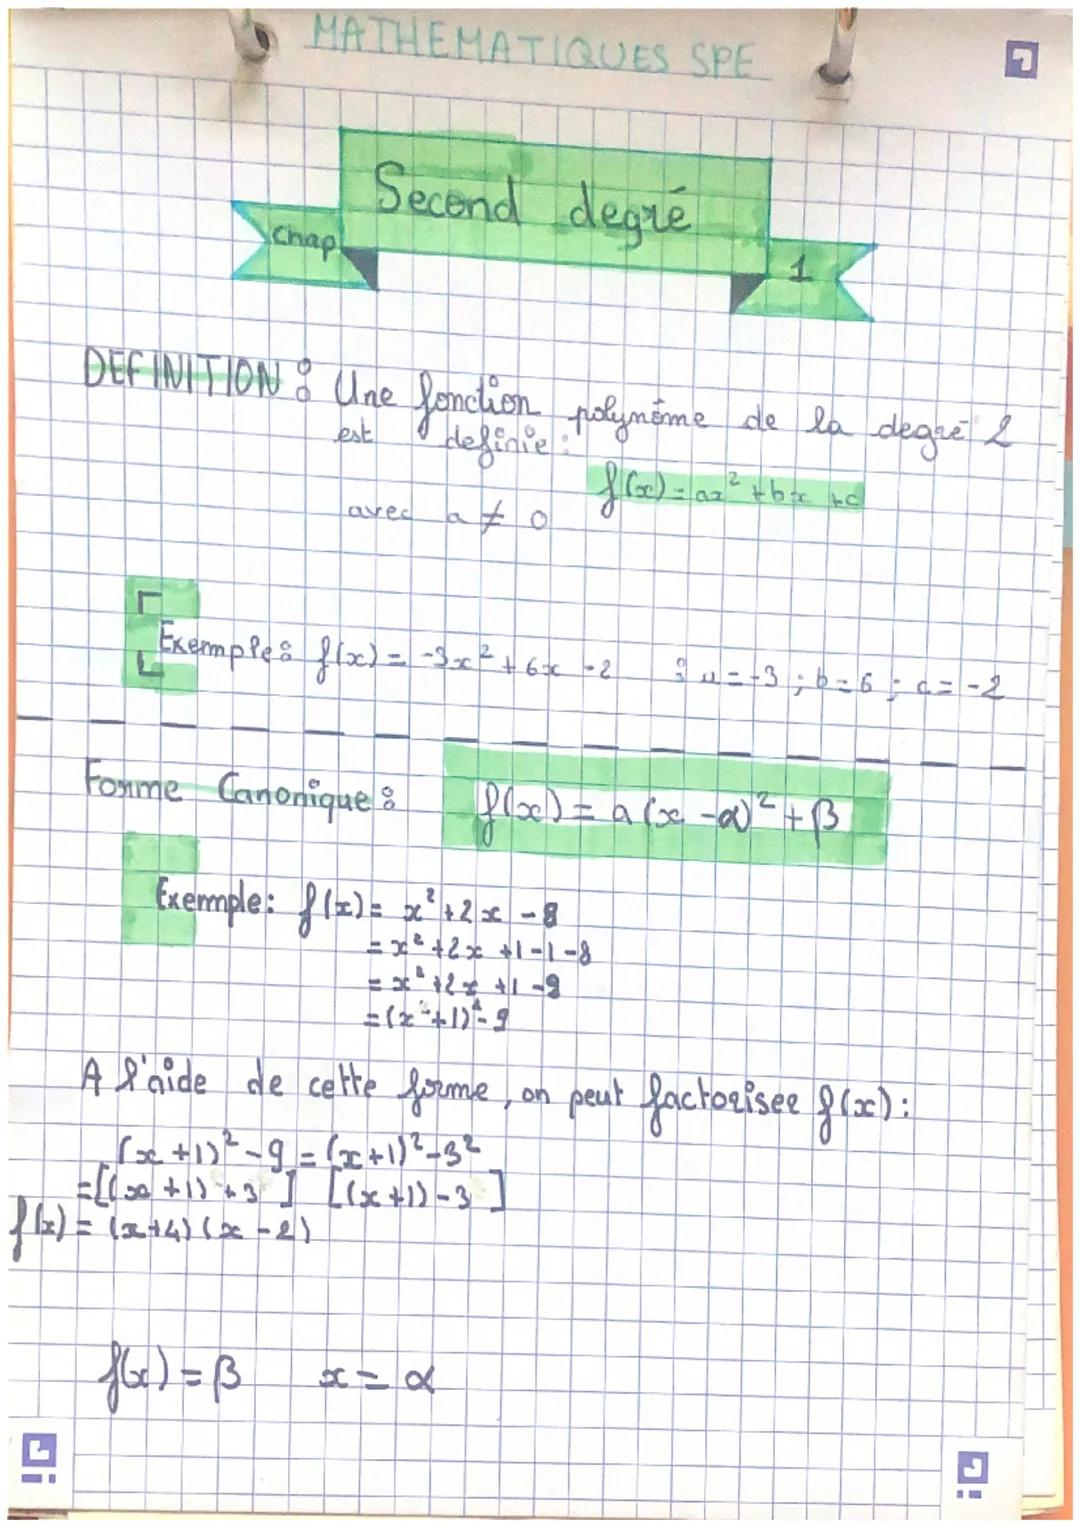 MATHEMATIQUES SPE
Second degré
chap
1
DEFINITION : Une fonction polynôme de la degré 2
est definie :
f(x) = ax² + bx + c
avec a ≠ 0
Exemple : f(x) = -3x² + 6x - 2 : a = -3 ; b = 6 ; c = -2
Forme Canonique : f(x) = a(x - α)² + β
Exemple : f(x) = x² + 2x - 8
= x² + 2x + 1 - 1 - 8
= x² + 2x + 1 - 9
= (x + 1)² - 9
A l'aide de cette forme, on peut factoriser f(x) :
(x + 1)² - 9 = (x + 1)² - 3²
= [(x + 1) + 3] [(x + 1) - 3]
f(x) = (x + 4)(x - 2)
f(x) = β x = α